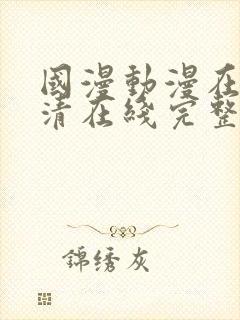 國漫動漫在
清在綫完整
錦綉灰